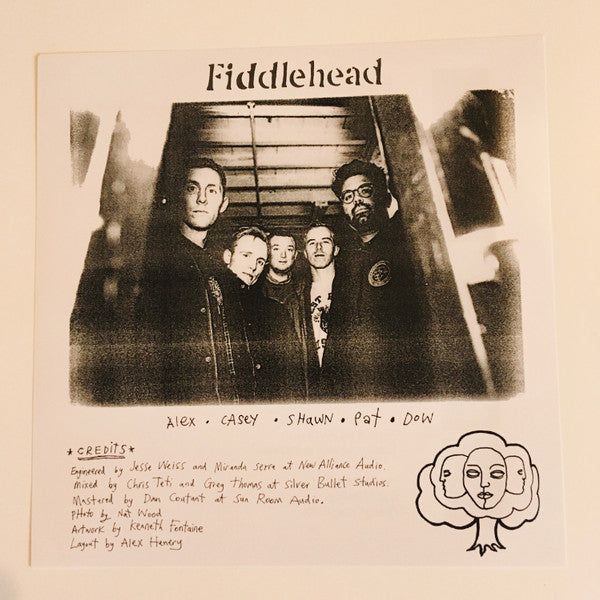 Fiddlehead
Alex • CASEY • SHAWN • Pat • DOW
* CREDITS *
Engineered by Jesse Weiss and Miranda Serra at New Alliance Audio.
Mixed by Chris Teti and Greg Thomas at Silver Bullet Studios.
Mastered by Dan Coutant at Sun Room Audio.
PHoto by Nat Wood
Artwork by Kenneth Fontaine
Layout by Alex Henery